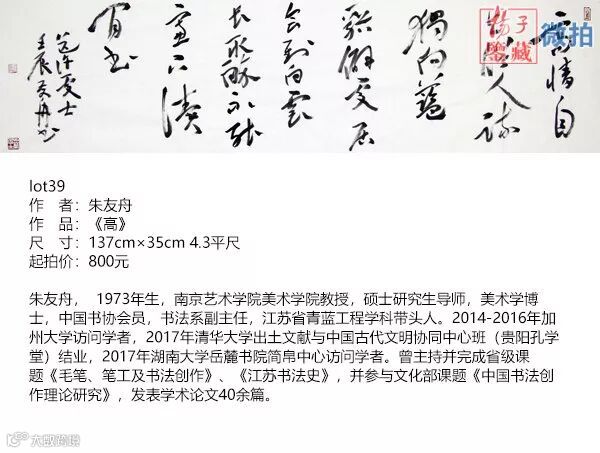 高情自
人疏
獨向藍
谿僻
會到白雲
长取醉不能
窗下读
书
壬辰友舟
揚子
鑒藏
微拍
lot39
作 者：朱友舟
作 品：《高》
尺 寸：137cm×35cm 4.3平尺
起拍价：800元
朱友舟， 1973年生，南京艺术学院美术学院教授，硕士研究生导师，美术学博
士，中国书协会员，书法系副主任，江苏省青蓝工程学科带头人。2014-2016年加
州大学访问学者，2017年清华大学出土文献与中国古代文明协同中心班（贵阳孔学
堂）结业，2017年湖南大学岳麓书院简帛中心访问学者。曾主持并完成省级课
题《毛笔、笔工及书法创作》、《江苏书法史》，并参与文化部课题《中国书法创
作理论研究》，发表学术论文40余篇。